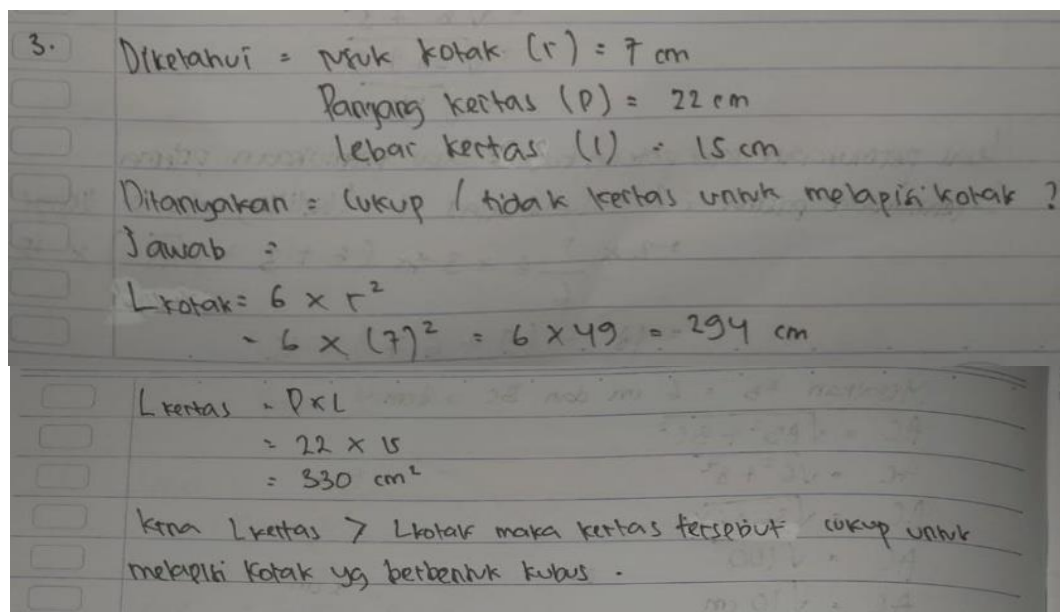 3. Diketahui = rusuk kotak (r) = 7 cm
Panjang kertas (p) = 22 cm
lebar kertas (l) = 15 cm
Ditanyakan = Cukup / tidak kertas untuk melapisi kotak ?
Jawab :
L kotak = 6 x r²
= 6 x (7)² = 6 x 49 = 294 cm
L kertas = P x L
= 22 x 15
= 330 cm²
krna L kertas > L kotak maka kertas tersebut cukup untuk
melapisi kotak yg berbentuk kubus .